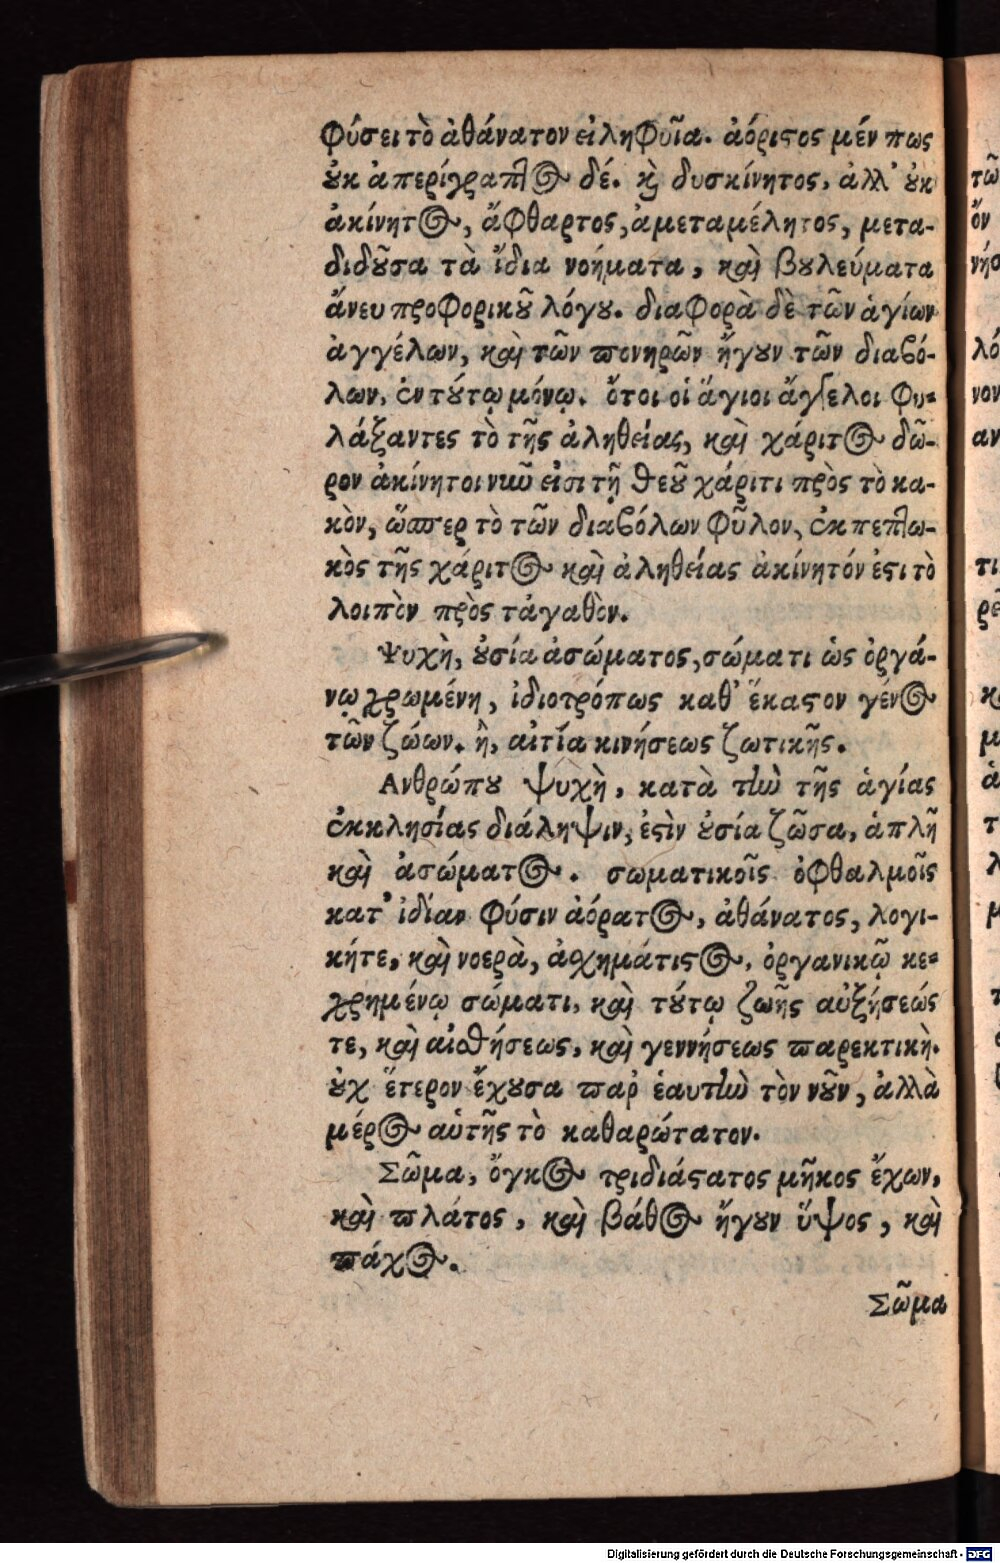 φύσει τὸ ἀθάνατον εἰληφυῖα. ἀόριϛος μέν πως
ȣ̓κ ἀπερίγραπτος δέ. κ̀ δυσκίνητος, ἀλλ' ȣ̓κ
ἀκίνητος, ἄφθαρτος, ἀμεταμέλητος, μετα-
διδȣ͂σα τὰ ἴδια νοήματα, καὶ βȣλεύματα
ἄνευ προφορικȣ͂ λόγȣ. διαφορὰ δὲ τῶν ἁγίων
ἀγγέλων, καὶ τῶν πονηρῶν ἤγȣν τῶν διαβό-
λων, ἐν τȣ́τῳ μόνῳ. ὅτοι οἱ ἅγιοι ἄγγελοι φυ-
λάξαντες τὸ τῆς ἀληθείας, καὶ χάριτος δῶ-
ρον ἀκίνητοι νῦν εἰσι τῇ θεȣ͂ χάριτι πρὸς τὸ κα-
κὸν, ὥσπερ τὸ τῶν διαβόλων φῦλον, ἐκπεπτω-
κὸς τῆς χάριτος καὶ ἀληθείας ἀκίνητόν ἐϛι τὸ
λοιπὸν πρὸς τἀγαθὸν.
Ψυχὴ, ȣ̓σία ἀσώματος, σώματι ὡς ὀργά-
νῳ χρωμένη, ἰδιοτρόπως καθ' ἕκαϛον γένος
τῶν ζώων. ἢ, αἰτία κινήσεως ζωτικῆς.
Ανθρώπȣ ψυχὴ, κατὰ τὴν τῆς ἁγίας
ἐκκλησίας διάληψιν, ἐϛὶν ȣ̓σία ζῶσα, ἁπλῆ
καὶ ἀσώματος. σωματικοῖς ὀφθαλμοῖς
κατ' ἰδίαν φύσιν ἀόρατος, ἀθάνατος, λογι-
κήτε, καὶ νοερὰ, ἀσχημάτιϛος, ὀργανικῷ κε-
χρημένῳ σώματι, καὶ τȣ́τῳ ζωῆς αὐξήσεώς
τε, καὶ αἰσθήσεως, καὶ γεννήσεως παρεκτικὴ.
ȣ̓χ ἕτερον ἔχȣσα παρ' ἑαυτὴν τὸν νȣ͂ν, ἀλλὰ
μέρος αὑτῆς τὸ καθαρώτατον.
Σῶμα, ὄγκος τριδιάϛατος μῆκος ἔχων,
καὶ πλάτος, καὶ βάθος ἤγȣν ὕψος, καὶ
πάχος.
Σῶμα
Digitalisierung gefördert durch die Deutsche Forschungsgemeinschaft - DFG